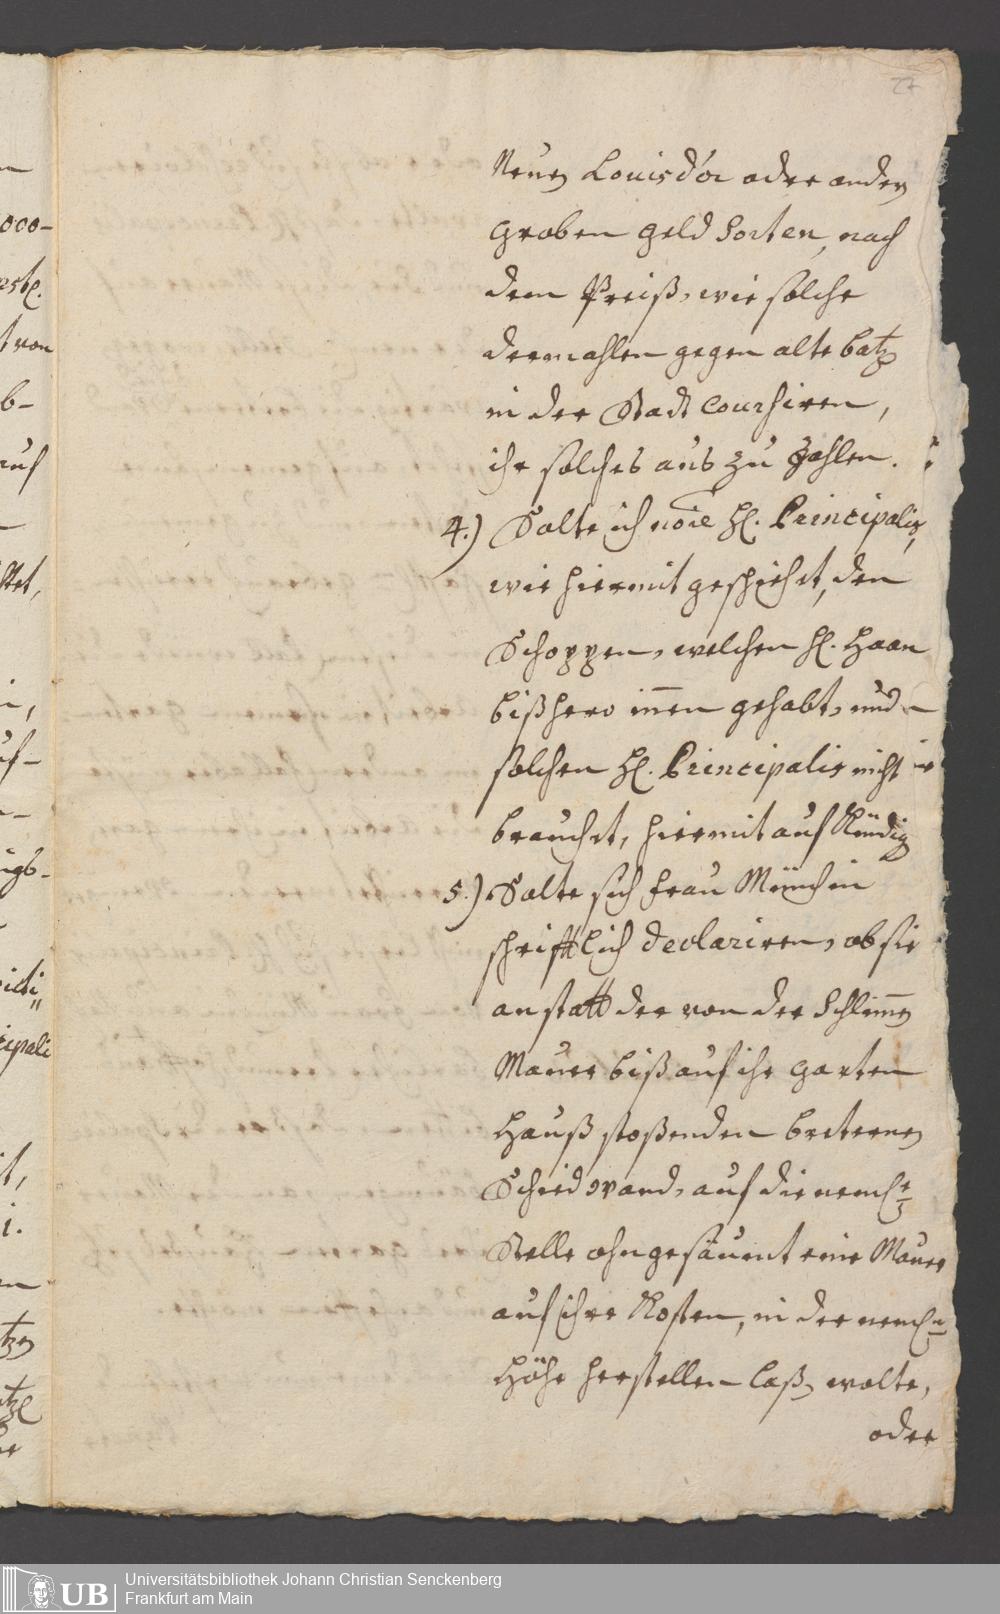 27
Neuen Louisd'or oder andern
groben geld Sorten, nach
dem Preiß, wie solche
dermahlen gegen alte batz
in der Stadt coursiren,
ihr solches aus zu zahlen.
4.) Solte ich noie H. Principalis,
wie hiermit geschiehet, den
Schoppen, welchen H. Haan
bißhero innen gehabt, und
solchen H. Principalis nicht
brauchet, hiermit auf Kündig
5.) Solte sich Frau Münchin
schrifftlich declariren, ob sie
anstatt der von der Schlimmen
Mauer biß auf ihr garten
Hauß stoßenden breternen
Schiedwand, auf die neml.
Stelle ohngesäumt eine Mauer
auf ihre Kosten, in der neml.
Höhe herstellen laß. wolte,
oder
oco-
t von
b-
auf
ttet,
i,
uf-
igs-
cipali
t,
i.
UB
Universitätsbibliothek Johann Christian Senckenberg
Frankfurt am Main